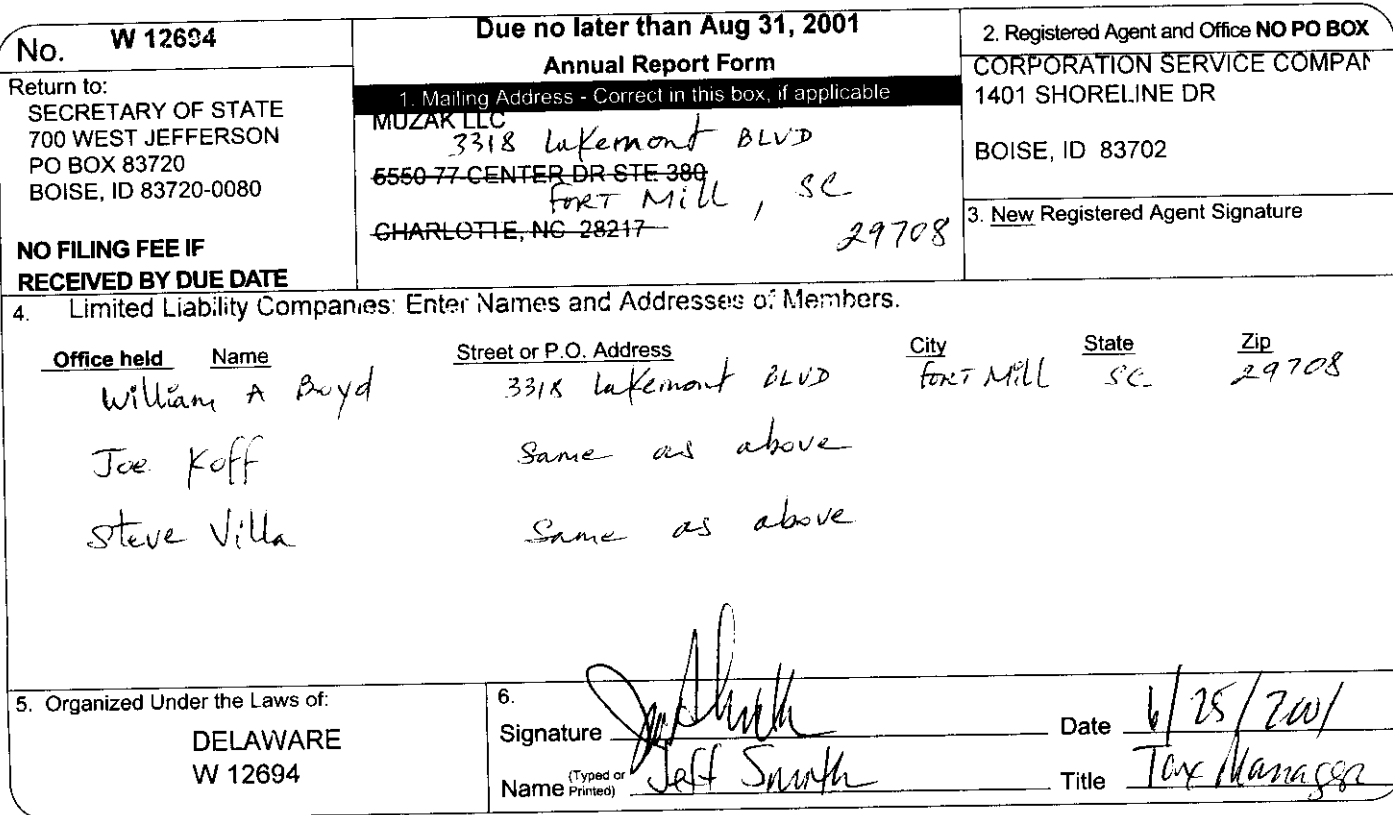 No. W 12694
Return to:
SECRETARY OF STATE
700 WEST JEFFERSON
PO BOX 83720
BOISE, ID 83720-0080
NO FILING FEE IF
RECEIVED BY DUE DATE
Due no later than Aug 31, 2001
Annual Report Form
1. Mailing Address - Correct in this box, if applicable
MUZAK LLC
3318 Lakemont BLVD
5550 77 CENTER DR STE 380
FORT Mill, SC
CHARLOTTE, NC 28217
29708
2. Registered Agent and Office NO PO BOX
CORPORATION SERVICE COMPAN
1401 SHORELINE DR
BOISE, ID 83702
3. New Registered Agent Signature
4. Limited Liability Companies: Enter Names and Addresses of Members.
Office held Name Street or P.O. Address City State Zip
William A Boyd 3318 Lakemont BLVD FORT Mill SC 29708
Joe Koff Same as above
Steve Villa Same as above
5. Organized Under the Laws of:
DELAWARE
W 12694
6.
Signature Date 6/25/2001
Name (Typed or Printed) Jeff Smith Title Tax Manager